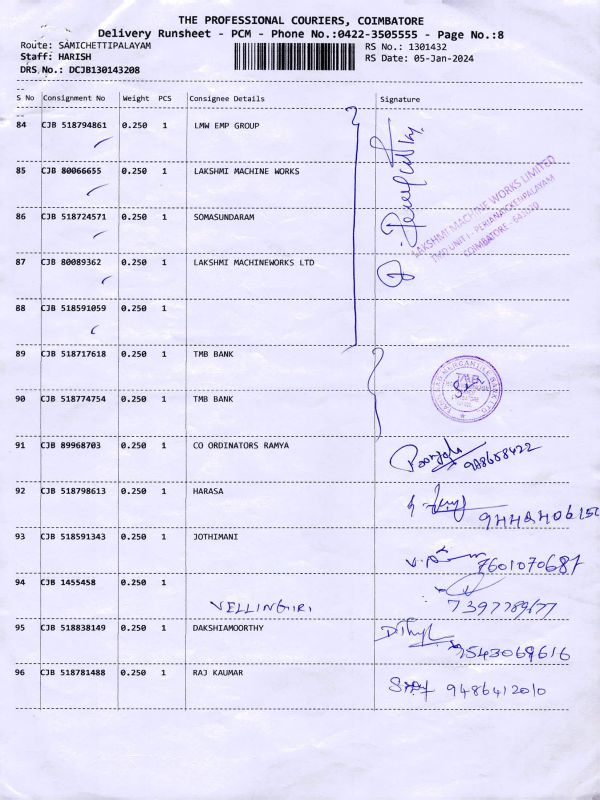 THE PROFESSIONAL COURIERS, COIMBATORE
Delivery Runsheet - PCM - Phone No.:0422-3505555 - Page No.:8
Route: SAMICHETTIPALAYAM RS No.: 1301432
Staff: HARISH RS Date: 05-Jan-2024
DRS No.: DCJB130143208
S No Consignment No Weight PCS Consignee Details Signature
84 CJB 518794861 0.250 1 LMW EMP GROUP
85 CJB 80066655 0.250 1 LAKSHMI MACHINE WORKS
LAKSHMI MACHINE WORKS LIMITED
UNIT I - PERIANAICKENPALAYAM
COIMBATORE - 641020
86 CJB 518724571 0.250 1 SOMASUNDARAM
87 CJB 80089362 0.250 1 LAKSHMI MACHINEWORKS LTD
88 CJB 518591059 0.250 1
89 CJB 518717618 0.250 1 TMB BANK
TAMILNAD MERCANTILE BANK LTD
90 CJB 518774754 0.250 1 TMB BANK
91 CJB 89968703 0.250 1 CO ORDINATORS RAMYA
92 CJB 518798613 0.250 1 HARASA
93 CJB 518591343 0.250 1 JOTHIMANI
7601070687
94 CJB 1455458 0.250 1
VELLINGIRI
95 CJB 518838149 0.250 1 DAKSHIAMOORTHY
9543069616
96 CJB 518781488 0.250 1 RAJ KAUMAR
9486412010